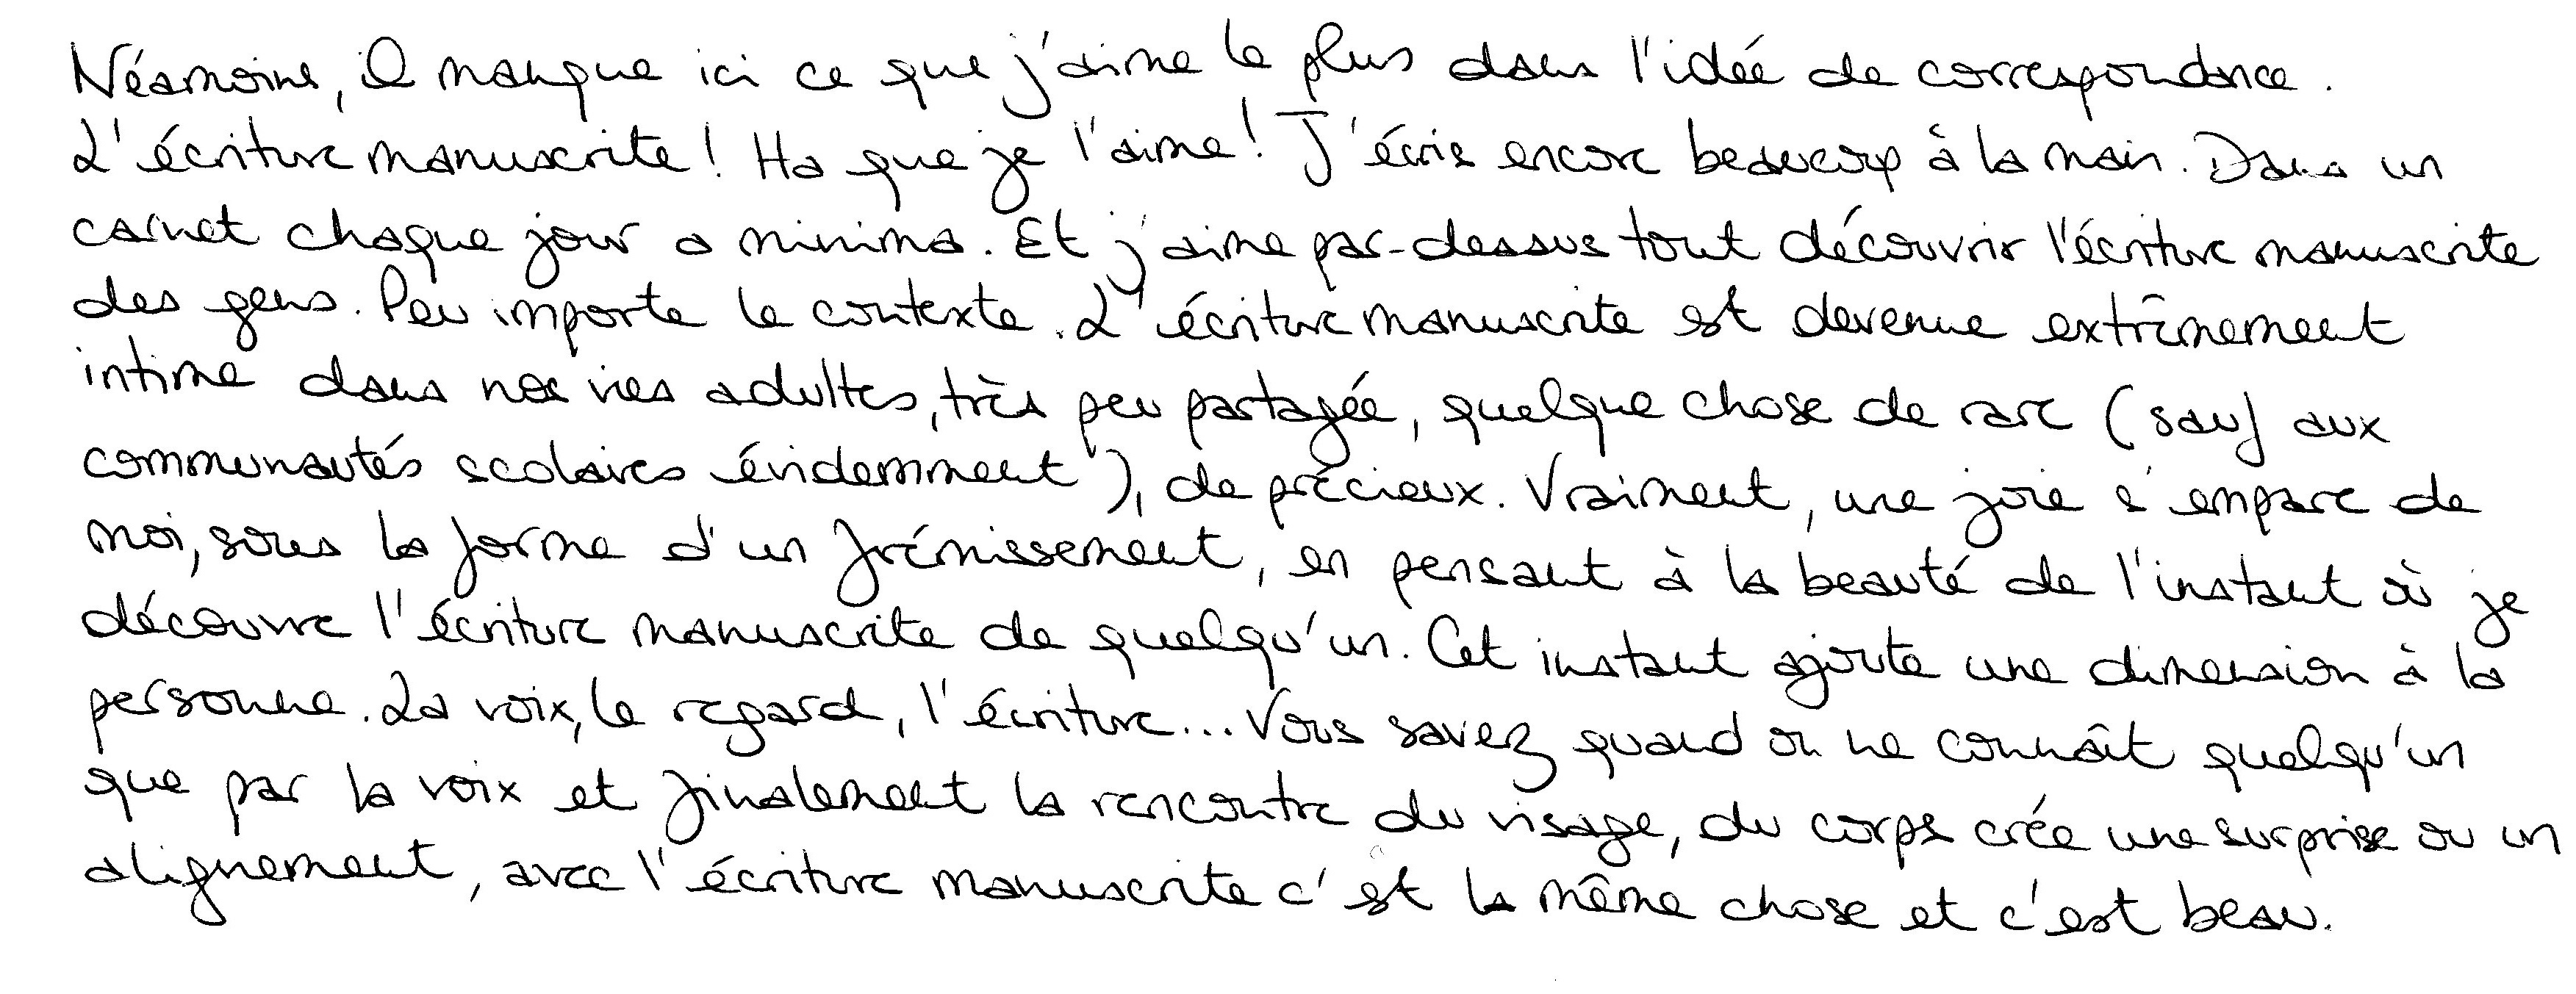 Néamoins, il manque ici ce que j'aime le plus dans l'idée de correspondance.
L'écriture manuscrite ! Ha que je l'aime ! J'écris encore beaucoup à la main. Dans un
carnet chaque jour a minima. Et j'aime par-dessus tout découvrir l'écriture manuscrite
des gens. Peu importe le contexte. L'écriture manuscrite est devenue extrêmement
intime dans nos vies adultes, très peu partagée, quelque chose de rare (sauf aux
communautés scolaires évidemment), de précieux. Vraiment, une joie s'empare de
moi, sous la forme d'un frémissement, en pensant à la beauté de l'instant où je
découvre l'écriture manuscrite de quelqu'un. Cet instant ajoute une dimension à la
personne. La voix, le regard, l'écriture... Vous savez quand on ne connaît quelqu'un
que par la voix et finalement la rencontre du visage, du corps crée une surprise ou un
alignement, avec l'écriture manuscrite c'est la même chose et c'est beau.